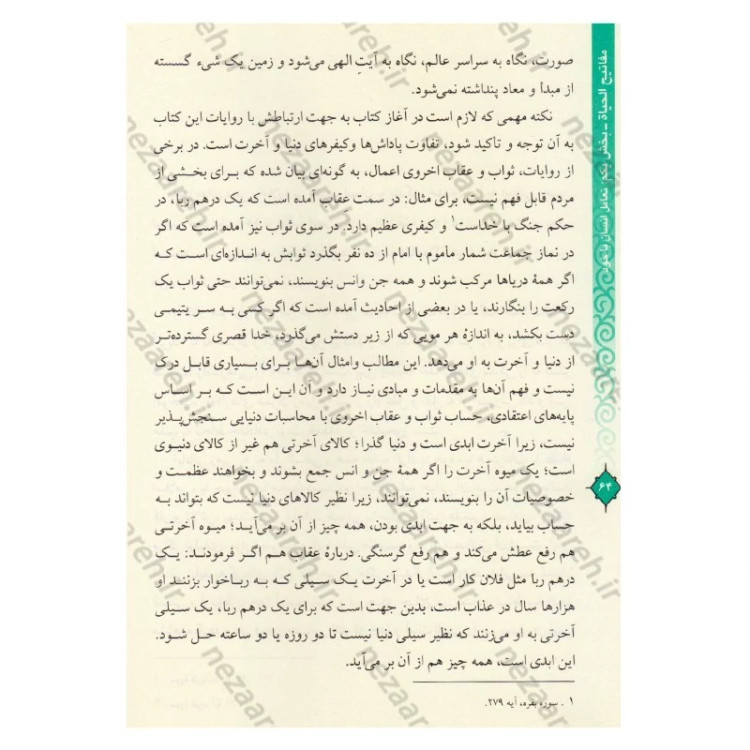 مفاتیح الحیاة ـ بخش یکم: تعامل انسان با خود
صورت، نگاه به سراسر عالم، نگاه به آیتِ الهی می‌شود و زمین یک شیء گسسته
از مبدا و معاد پنداشته نمی‌شود.
نکته مهمی که لازم است در آغاز کتاب به جهت ارتباطش با روایات این کتاب
به آن توجه و تاکید شود، تفاوت پاداش‌ها وکیفرهای دنیا و آخرت است. در برخی
از روایات، ثواب و عقاب اخروی اعمال، به گونه‌ای بیان شده که برای بخشی از
مردم قابل فهم نیست، برای مثال: در سمت عقاب آمده است که یک درهم ربا، در
حکم جنگ با خداست۱ و کیفری عظیم دارد. در سوی ثواب نیز آمده است که اگر
در نماز جماعت شمار مأموم با امام از ده نفر بگذرد ثوابش به اندازه‌ای است که
اگر همهٔ دریاها مرکب شوند و همه جن وانس بنویسند، نمی‌توانند حتی ثواب یک
رکعت را بنگارند، یا در بعضی از احادیث آمده است که اگر کسی به سر یتیمی
دست بکشد، به اندازهٔ هر مویی که از زیر دستش می‌گذرد، خدا قصری گسترده‌تر
از دنیا و آخرت به او می‌دهد. این مطالب وامثال آن‌ها برای بسیاری قابل درک
نیست و فهم آن‌ها به مقدمات و مبادی نیاز دارد و آن این است که بر اساس
پایه‌های اعتقادی، حساب ثواب و عقاب اخروی با محاسبات دنیایی سنجش‌پذیر
نیست، زیرا آخرت ابدی است و دنیا گذرا؛ کالای آخرتی هم غیر از کالای دنیوی
است؛ یک میوه آخرت را اگر همهٔ جن و انس جمع بشوند و بخواهند عظمت و
خصوصیات آن را بنویسند، نمی‌توانند، زیرا نظیر کالاهای دنیا نیست که بتواند به
حساب بیاید، بلکه به جهت ابدی بودن، همه چیز از آن بر می‌آید؛ میوه آخرتی
هم رفع عطش می‌کند و هم رفع گرسنگی. دربارهٔ عقاب هم اگر فرمودند: یک
درهم ربا مثل فلان کار است یا در آخرت یک سیلی که به رباخوار بزنند او
هزارها سال در عذاب است، بدین جهت است که برای یک درهم ربا، یک سیلی
آخرتی به او می‌زنند که نظیر سیلی دنیا نیست تا دو روزه یا دو ساعته حل شود.
این ابدی است، همه چیز هم از آن بر می‌آید.
۱ . سوره بقره، آیه ۲۷۹.
۶۴
nezaareh.ir